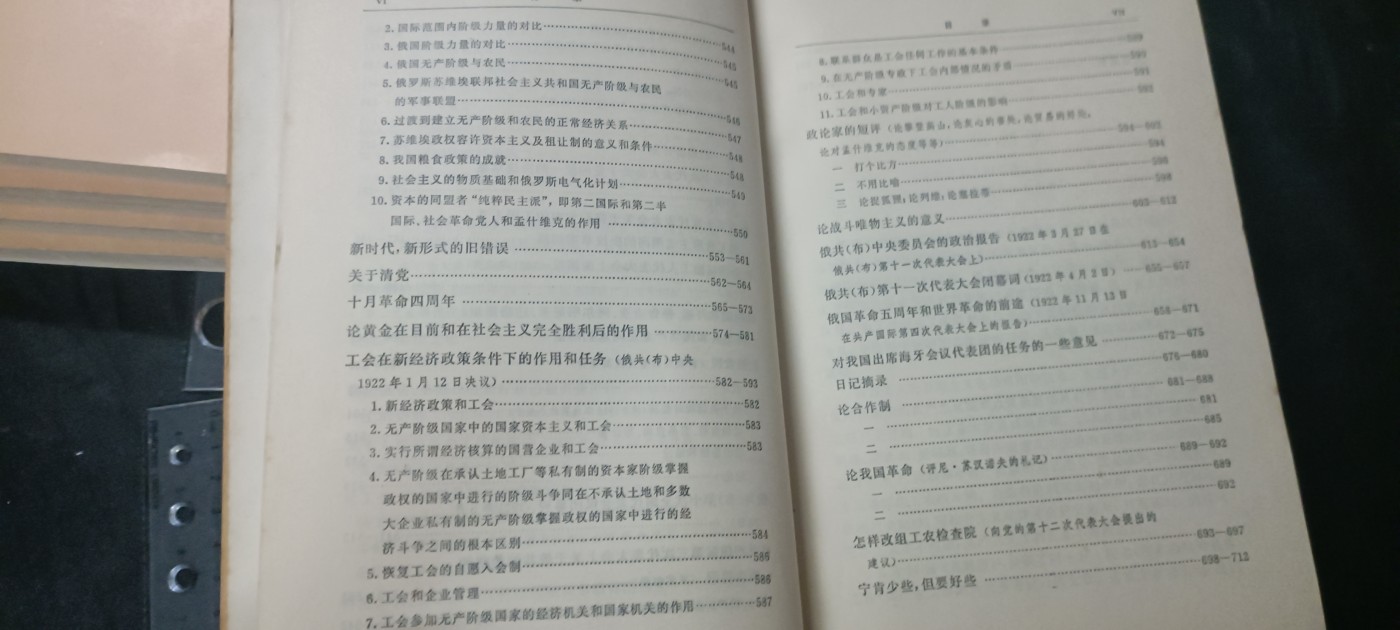 VI
2. 国际范围内阶级力量的对比……544
3. 俄国阶级力量的对比……545
4. 俄国无产阶级与农民……545
5. 俄罗斯苏维埃联邦社会主义共和国无产阶级与农民
的军事联盟……546
6. 过渡到建立无产阶级和农民的正常经济关系……547
7. 苏维埃政权容许资本主义及租让制的意义和条件……548
8. 我国粮食政策的成就……548
9. 社会主义的物质基础和俄罗斯电气化计划……549
10. 资本的同盟者“纯粹民主派”，即第二国际和第二半
国际、社会革命党人和孟什维克的作用……550
新时代，新形式的旧错误……553—561
关于清党……562—564
十月革命四周年……565—573
论黄金在目前和在社会主义完全胜利后的作用……574—581
工会在新经济政策条件下的作用和任务（俄共(布)中央
1922年1月12日决议）……582—593
1. 新经济政策和工会……582
2. 无产阶级国家中的国家资本主义和工会……583
3. 实行所谓经济核算的国营企业和工会……583
4. 无产阶级在承认土地工厂等私有制的资本家阶级掌握
政权的国家中进行的阶级斗争同在不承认土地和多数
大企业私有制的无产阶级掌握政权的国家中进行的经
济斗争之间的根本区别……584
5. 恢复工会的自愿入会制……586
6. 工会和企业管理……586
7. 工会参加无产阶级国家的经济机关和国家机关的作用……587
目 录
8. 联系群众是工会任何工作的基本条件……589
9. 在无产阶级专政下工会内部情况的矛盾……590
10. 工会和专家……591
11. 工会和小资产阶级对工人阶级的影响……592
政论家的短评（论攀登高山，论灰心的害处，论贸易的好处，
论对孟什维克的态度等等）……594—602
一 打个比方……594
二 不用比喻……596
三 论捉狐狸；论列维；论塞拉蒂……598
论战斗唯物主义的意义……603—612
俄共(布)中央委员会的政治报告（1922年3月27日在
俄共(布)第十一次代表大会上）……613—654
俄共(布)第十一次代表大会闭幕词（1922年4月2日）……655—657
俄国革命五周年和世界革命的前途（1922年11月13日
在共产国际第四次代表大会上的报告）……658—671
对我国出席海牙会议代表团的任务的一些意见……672—675
日记摘录……676—680
论合作制……681—688
一……681
二……685
论我国革命（评尼·苏汉诺夫的札记）……689—692
一……689
二……692
怎样改组工农检查院（向党的第十二次代表大会提出的
建议）……693—697
宁肯少些，但要好些……698—712